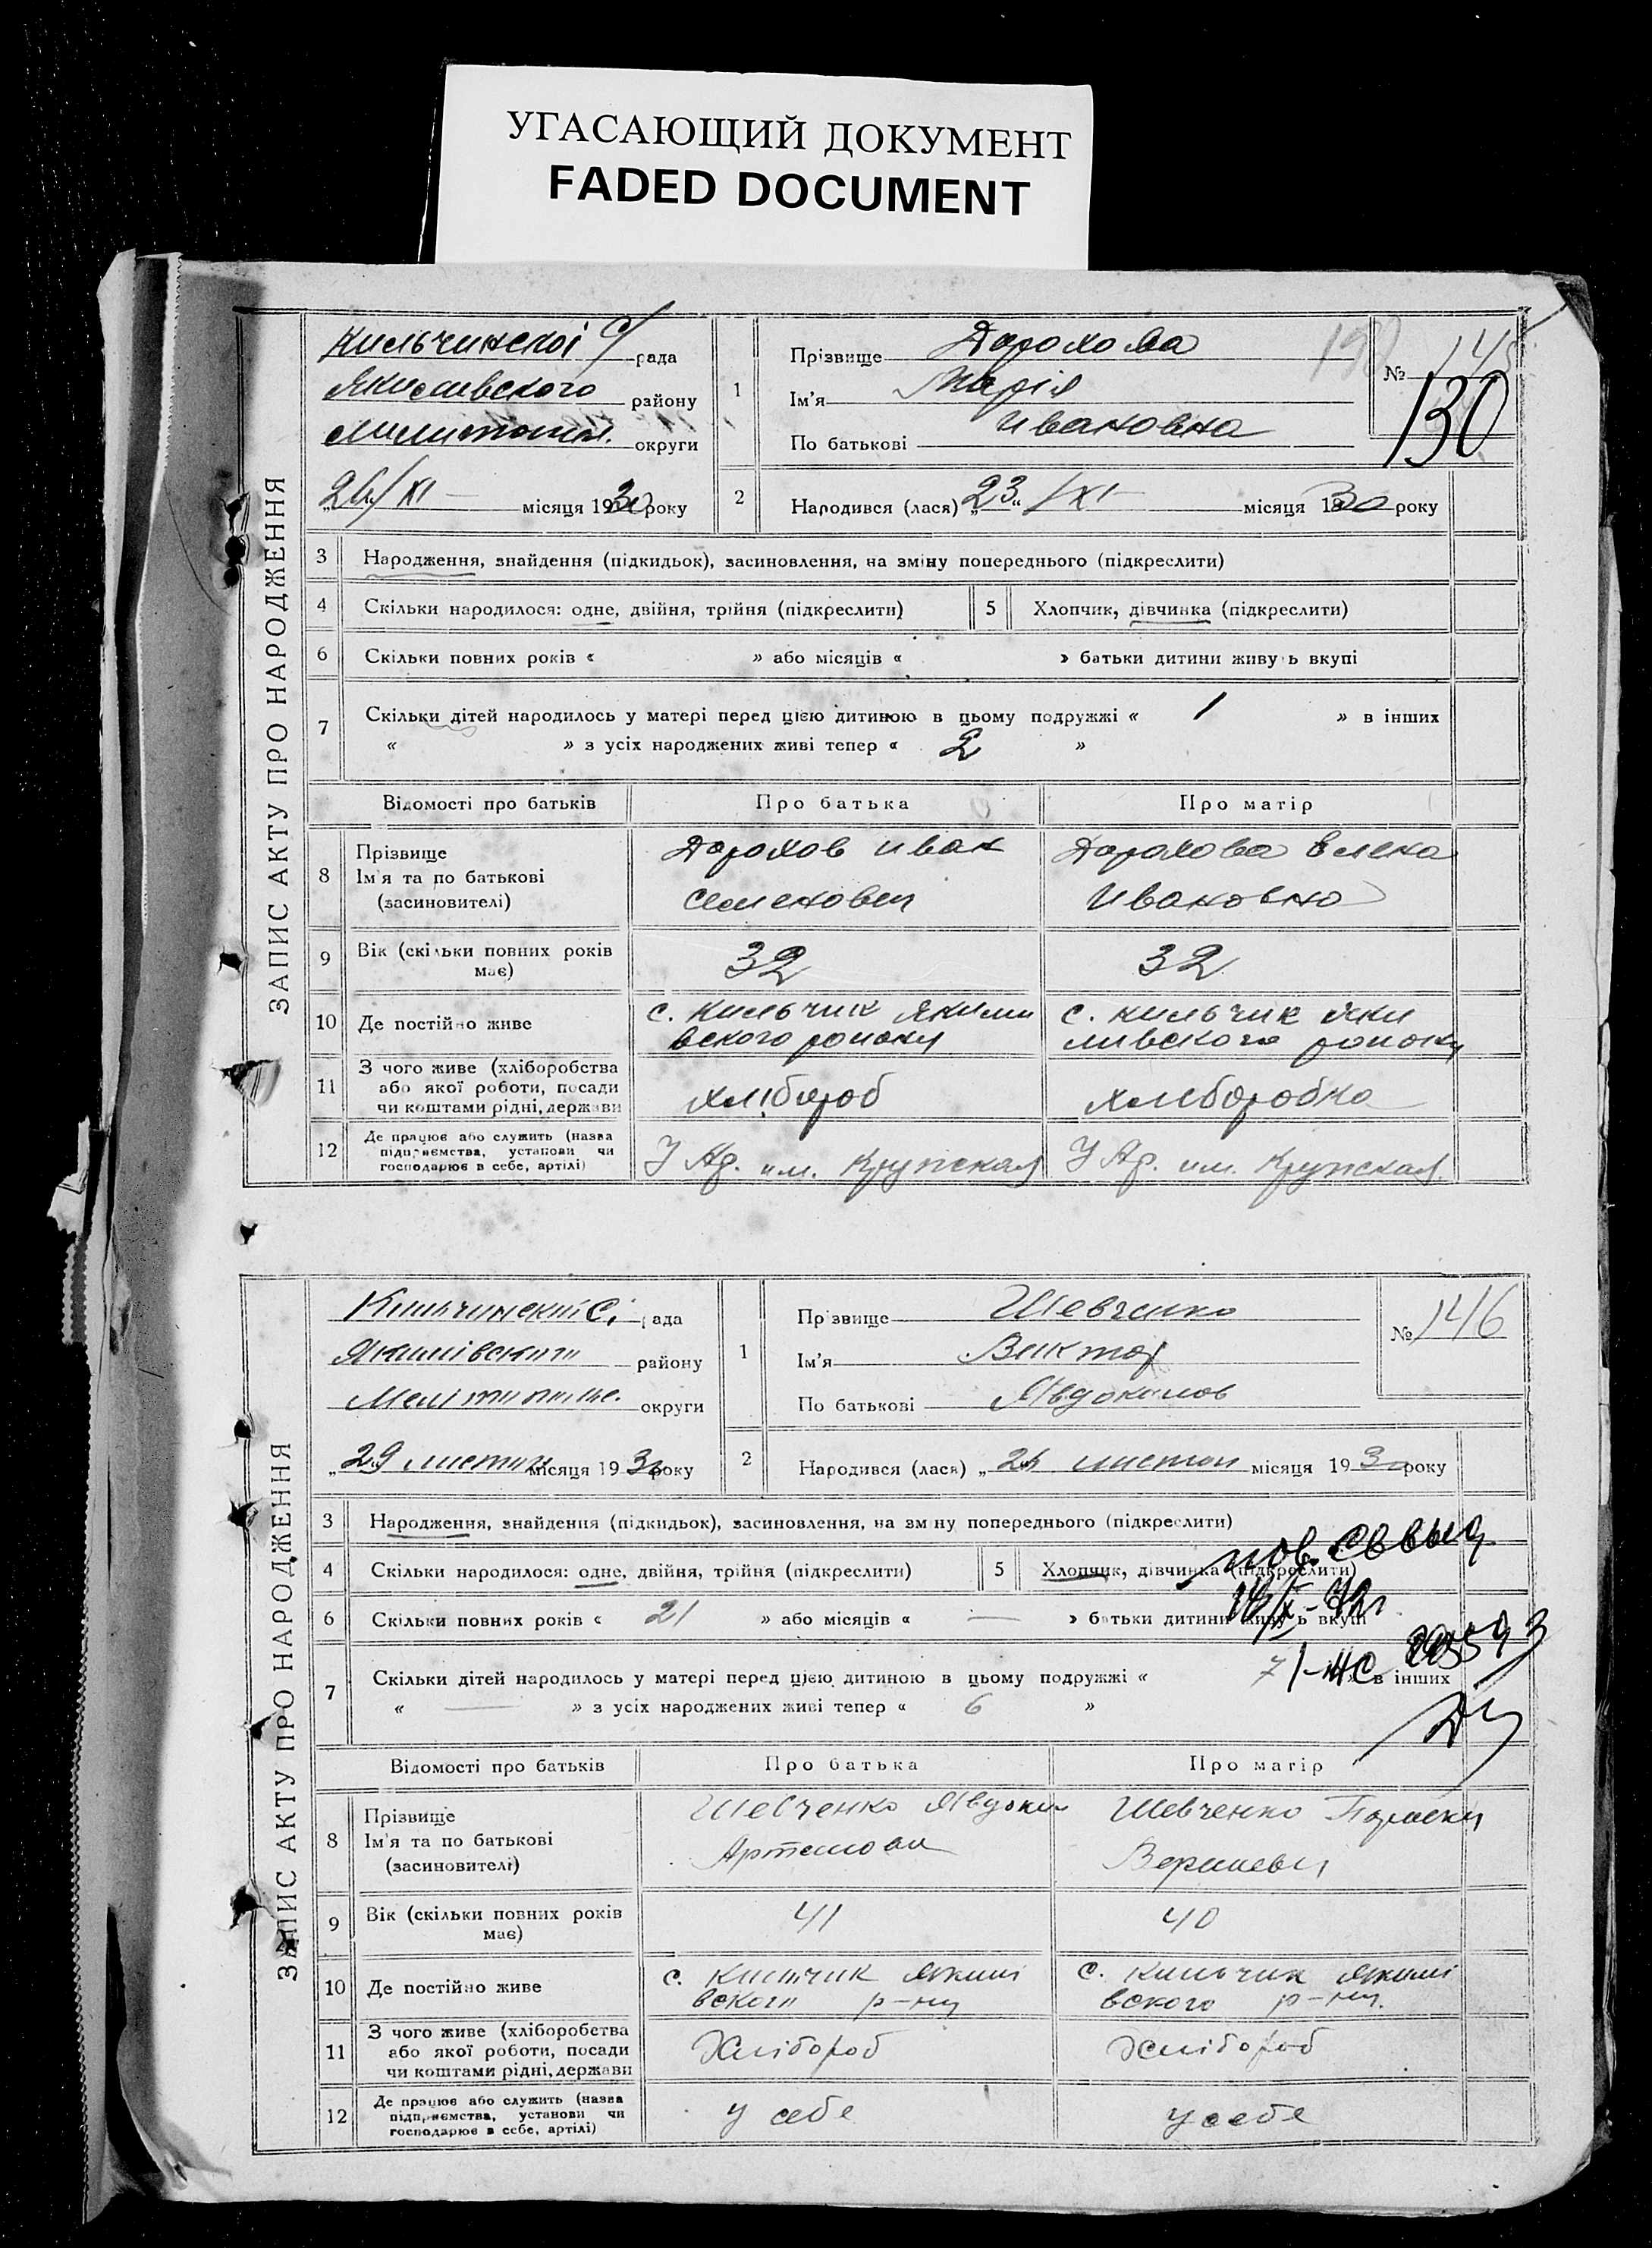 УГАСАЮЩИЙ ДОКУМЕНТ
FADED DOCUMENT
ЗАПИС АКТУ ПРО НАРОДЖЕННЯ
Кильчинскої с/ рада
Якимивского району
округи
26/XI — місяця 1930 року
1
Прізвище Дорохова
Ім'я Марія
По батькові Ивановна
№ 145
130
2
Народився (лася) „23“ /XI — місяця 1930 року
3 Народження, знайдення (підкидьок), засиновлення, на зміну попереднього (підкреслити)
4 Скільки народилося: одне, двійня, трійня (підкреслити)
5 Хлопчик, дівчинка (підкреслити)
6 Скільки повних років « » або місяців « » батьки дитини живуть вкупі
7 Скільки дітей народилось у матері перед цією дитиною в цьому подружжі « 1 » в інших
« » з усіх народжених живі тепер « 2 »
Відомості про батьків Про батька Про матір
8 Прізвище
Ім'я та по батькові
(засиновителі)
Дорохов Иван
Семенович
Дорохова Елена
Ивановна
9 Вік (скільки повних років
має)
32
32
10 Де постійно живе
с. Кильчик Якими
вского району
с. Кильчик Яки
мивского району
11 З чого живе (хліборобства
або якої роботи, посади
чи коштами рідні, держави
хлібороб
хлеборобка
12 Де працює або служить (назва
підприємства, установи чи
господарює в себе, артілі)
У Ар. им. Крупская
У Ар. им. Крупская
ЗАПИС АКТУ ПРО НАРОДЖЕННЯ
Кильчинский с. рада
Якимівского району
округи
„29 листоп місяця 1930 року
1
Прізвище Шевченко
Ім'я Виктор
По батькові Явдокимов
№ 146
2
Народився (лася) „ листоп місяця 1930 року
3 Народження, знайдення (підкидьок), засиновлення, на зміну попереднього (підкреслити)
4 Скільки народилося: одне, двійня, трійня (підкреслити)
5 Хлопчик, дівчинка (підкреслити)
пов. св выд
6 Скільки повних років « 21 » або місяців « — » батьки дитини живуть вкупі
7 Скільки дітей народилось у матері перед цією дитиною в цьому подружжі « 7 в інших
« — » з усіх народжених живі тепер « 6 »
Відомості про батьків Про батька Про матір
8 Прізвище
Ім'я та по батькові
(засиновителі)
Шевченко Явдоким
Артемови
Шевченко Параски
9 Вік (скільки повних років
має)
41
40
10 Де постійно живе
с. Кильчик Якимі
вского р-ну
с. Кильчик Якимі
вского р-ну.
11 З чого живе (хліборобства
або якої роботи, посади
чи коштами рідні, держави
Хлібороб
Хлібороб
12 Де працює або служить (назва
підприємства, установи чи
господарює в себе, артілі)
у себе
у себе